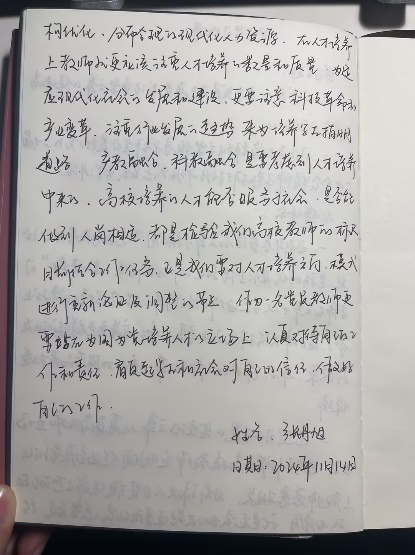 构优化、分布合理的现代化人力资源。在人才培养
上教师们更应该注重人才培养的数量和质量
应现代化社会的发展和建设,更要注意科技革命和
产业变革,注重行业发展的趋势 来为培养学生指明
道路 产教融合 科教融合是要考虑到人才培养
中来的,高校培养的人才能否服务于社会,是否能
做到人岗相适,都是检验我们高校教师的标尺
目前 工作任务,正是我们要对人才培养方向、模式
进行重新论证及调整的节点 作为一名党员教师更
要站在为国为党培养人才的立场上 认真对待自己的工
作和责任,肩负起学校和社会对自己的信任,做好
自己的工作。
姓名:张丹旭
日期:2024年11月14日